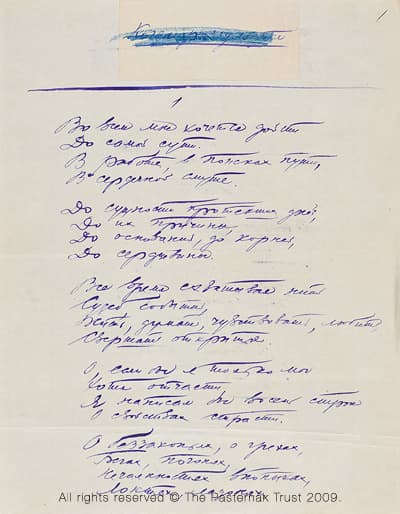 1
Когда разгуляется
1
Во всем мне хочется дойти
До самой сути.
В работе, в поисках пути,
В сердечной смуте.
До сущности протекших дней,
До их причины,
До основанья, до корней,
До сердцевины.
Все время схватывая нить
Судеб, событий,
Жить, думать, чувствовать, любить
Свершать открытья.
О, если бы я только мог
Хотя отчасти,
Я написал бы восемь строк
О свойствах страсти.
О беззаконьях, о грехах,
Бегах, погонях,
Нечаянностях впопыхах,
Локтях, ладонях.
All rights reserved © The Pasternak Trust 2009.